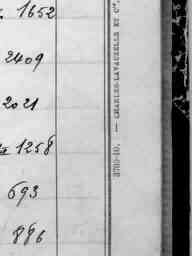 1652
2409
2021
1258
693
886
3700-10. — CHARLES-LAVAUZELLE ET Cie.